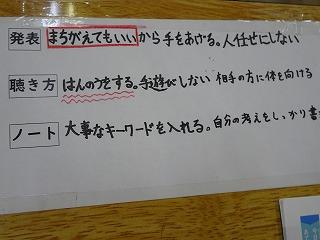 発表 まちがえてもいいから手をあげる。人任せにしない
聴き方 はんのうをする。手遊びしない 相手の方に体を向ける
ノート 大事なキーワードを入れる。自分の考えをしっかり書